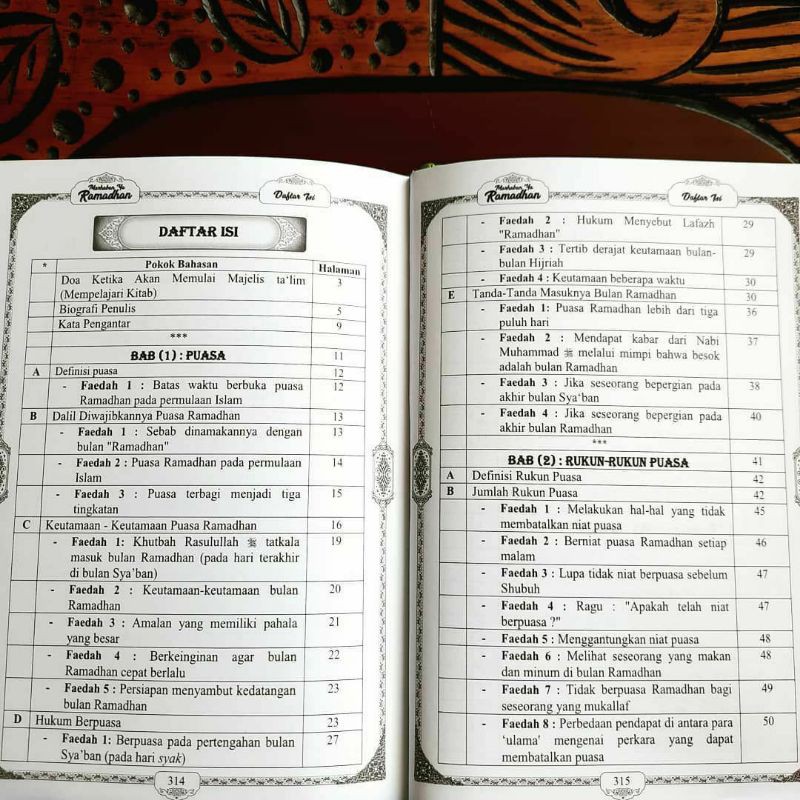 Marhaban Ya
Ramadhan
Daftar Isi
DAFTAR ISI
* Pokok Bahasan Halaman
Doa Ketika Akan Memulai Majelis ta‘lim 3
(Mempelajari Kitab)
Biografi Penulis 5
Kata Pengantar 9
***
BAB (1) : PUASA 11
A Definisi puasa 12
- Faedah 1 : Batas waktu berbuka puasa 12
Ramadhan pada permulaan Islam
B Dalil Diwajibkannya Puasa Ramadhan 13
- Faedah 1 : Sebab dinamakannya dengan 13
bulan "Ramadhan"
- Faedah 2 : Puasa Ramadhan pada permulaan 14
Islam
- Faedah 3 : Puasa terbagi menjadi tiga 15
tingkatan
C Keutamaan - Keutamaan Puasa Ramadhan 16
- Faedah 1: Khutbah Rasulullah ﷺ tatkala 19
masuk bulan Ramadhan (pada hari terakhir
di bulan Sya‘ban)
- Faedah 2 : Keutamaan-keutamaan bulan 20
Ramadhan
- Faedah 3 : Amalan yang memiliki pahala 21
yang besar
- Faedah 4 : Berkeinginan agar bulan 22
Ramadhan cepat berlalu
- Faedah 5 : Persiapan menyambut kedatangan 23
bulan Ramadhan
D Hukum Berpuasa 23
- Faedah 1: Berpuasa pada pertengahan bulan 27
Sya‘ban (pada hari syak)
314
Marhaban Ya
Ramadhan
Daftar Isi
- Faedah 2 : Hukum Menyebut Lafazh 29
"Ramadhan"
- Faedah 3 : Tertib derajat keutamaan bulan- 29
bulan Hijriah
- Faedah 4 : Keutamaan beberapa waktu 30
E Tanda-Tanda Masuknya Bulan Ramadhan 30
- Faedah 1: Puasa Ramadhan lebih dari tiga 36
puluh hari
- Faedah 2 : Mendapat kabar dari Nabi 37
Muhammad ﷺ melalui mimpi bahwa besok
adalah bulan Ramadhan
- Faedah 3 : Jika seseorang bepergian pada 38
akhir bulan Sya‘ban
- Faedah 4 : Jika seseorang bepergian pada 40
akhir bulan Ramadhan
***
BAB (2) : RUKUN-RUKUN PUASA 41
A Definisi Rukun Puasa 42
B Jumlah Rukun Puasa 42
- Faedah 1 : Melakukan hal-hal yang tidak 45
membatalkan niat puasa
- Faedah 2 : Berniat puasa Ramadhan setiap 46
malam
- Faedah 3 : Lupa tidak niat berpuasa sebelum 47
Shubuh
- Faedah 4 : Ragu : "Apakah telah niat 47
berpuasa ?"
- Faedah 5 : Menggantungkan niat puasa 48
- Faedah 6 : Melihat seseorang yang makan 48
dan minum di bulan Ramadhan
- Faedah 7 : Tidak berpuasa Ramadhan bagi 49
seseorang yang mukallaf
- Faedah 8 : Perbedaan pendapat di antara para 50
‘ulama' mengenai perkara yang dapat
membatalkan puasa
315